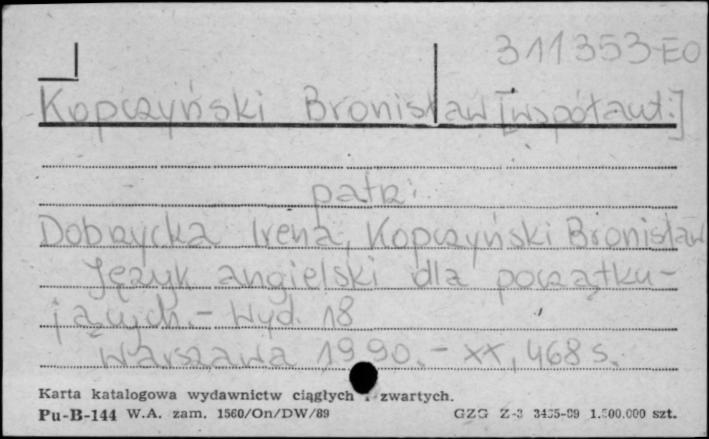 311353-EO
Kopczyński Bronisław [współaut.]
patrz:
Dobrzycka Irena, Kopczyński Bronisław
Język angielski dla początku-
jących. - Wyd. 18
Warszawa 1990. - XX, 468 s.
Karta katalogowa wydawnictw ciągłych i zwartych.
Pu-B-144 W.A. zam. 1560/On/DW/89 GZG Z-3 3435-89 1.500.000 szt.